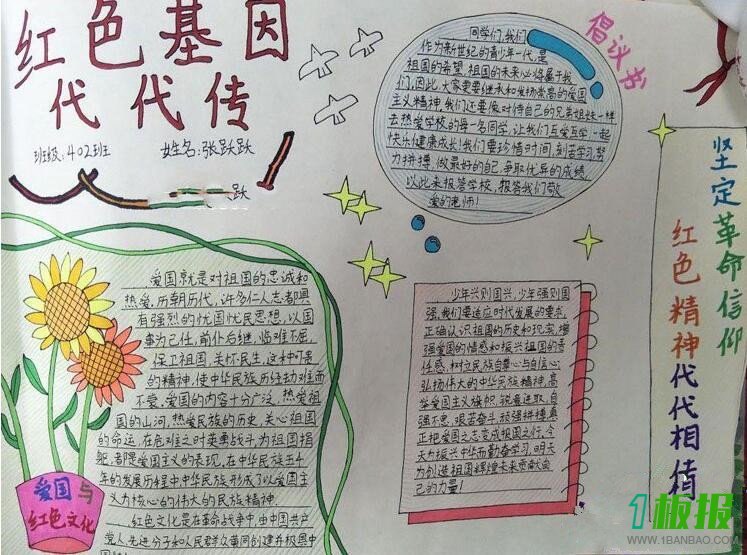 红色基因
代代传
班级:402班 姓名:张跃跃
跃
倡议书
同学们,我们
作为新世纪的青少年一代,是
祖国的希望,祖国的未来必将属于我
们,因此,大家要继承和发扬崇高的爱国
主义精神,我们还要像对待自己的兄弟姐妹一样
去热爱学校的每一名同学,让我们互爱互学,一起
快乐健康成长!我们要珍惜时间,刻苦学习,努
力拼搏,做最好的自己,争取优异的成绩,
以此来报答学校,报答我们敬
爱的老师!
坚定革命信仰
红色精神代代相传
爱国就是对祖国的忠诚和
热爱,历朝历代,许多仁人志士都具
有强烈的忧国忧民思想,以国
事为己任,前仆后继,临难不屈,
保卫祖国,关怀民生,这种可贵
的精神,使中华民族历经劫难而
不衰。爱国的内容十分广泛,热爱祖
国的山河,热爱民族的历史,关心祖国
的命运,在危难之时英勇战斗,为祖国捐
躯,都是爱国主义的表现,在中华民族五千
年的发展历程中,中华民族形成了以爱国主
义为核心的伟大的民族精神。
红色文化是在革命战争中,由中国共产
党人,先进分子和人民群众共同创建并极具中
少年兴则国兴,少年强则国
强,我们要适应时代发展的要求,
正确认识祖国的历史和现实,增
强爱国的情感和振兴祖国的责
任感,树立民族自尊心与自信心;
弘扬伟大的中华民族精神,高
举爱国主义旗帜,锐意进取,自
强不息,艰苦奋斗,顽强拼搏,真
正把爱国之志变成报国之行。今
天为振兴中华而勤奋学习,明天
为创造祖国辉煌未来贡献自
己的力量!
爱国与
红色文化
1板报
WWW.1BANBAO.COM